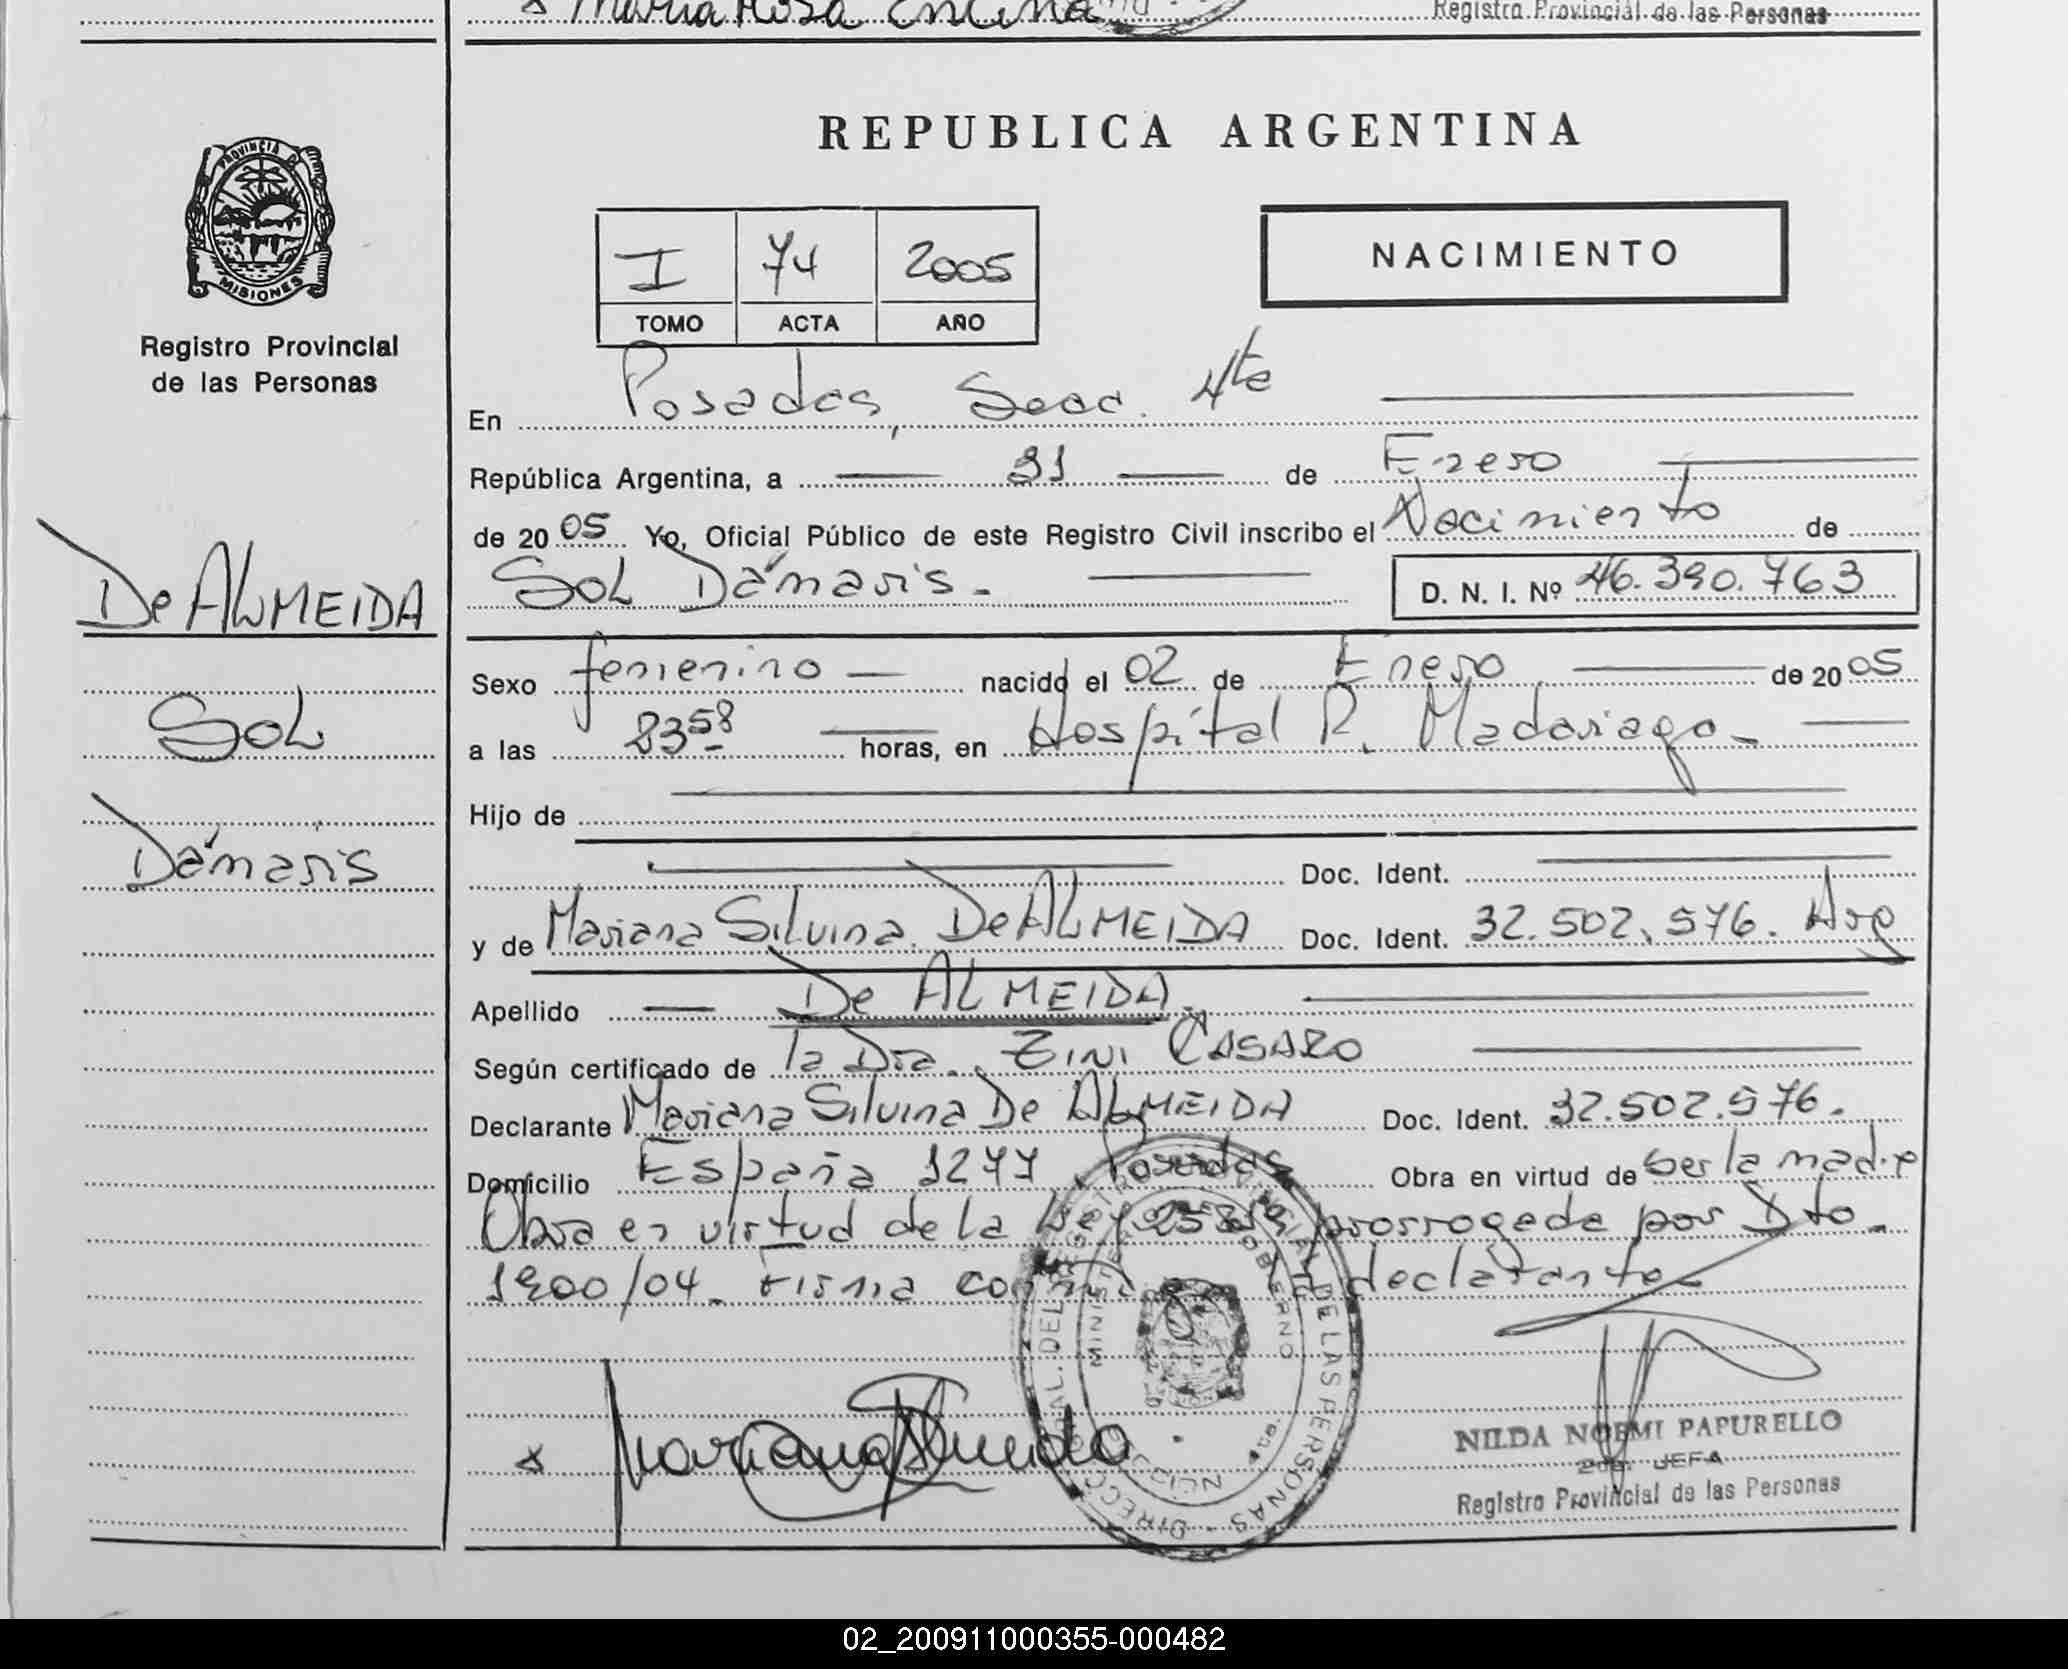 Maria Rosa Encina
Registro Provincial de las Personas
PROVINCIA D
MISIONES
Registro Provincial
de las Personas
De ALMEIDA
SOL
Dámaris
REPUBLICA ARGENTINA
I 74 2005
TOMO ACTA AÑO
NACIMIENTO
En Posadas, Secc. 4ta
República Argentina, a 31 de Enero
de 2005 Yo, Oficial Público de este Registro Civil inscribo el Nacimiento de
SOL Dámaris. D. N. I. Nº 46.390.763
Sexo femenino nacido el 02 de Enero de 2005
a las 2358 horas, en Hospital R. Madariaga
Hijo de
Doc. Ident.
y de Mariana Silvina De ALMEIDA Doc. Ident. 32.502.576. Arg
Apellido De ALMEIDA.
Según certificado de la Dra. ZINI CASARO
Declarante Mariana Silvina De ALMEIDA Doc. Ident. 32.502.576.
Domicilio España 1277, Posadas Obra en virtud de ser la madre
Obra en virtud de la Ley prorrogada por Dto.
1900/04. Firma la declarante
DIRECC GRAL. DEL REGISTRO PROVINCIAL DE LAS PERSONAS
MINISTERIO GOBIERNO
NILDA NOEMI PAPURELLO
2da. JEFA
Registro Provincial de las Personas
02_200911000355-000482